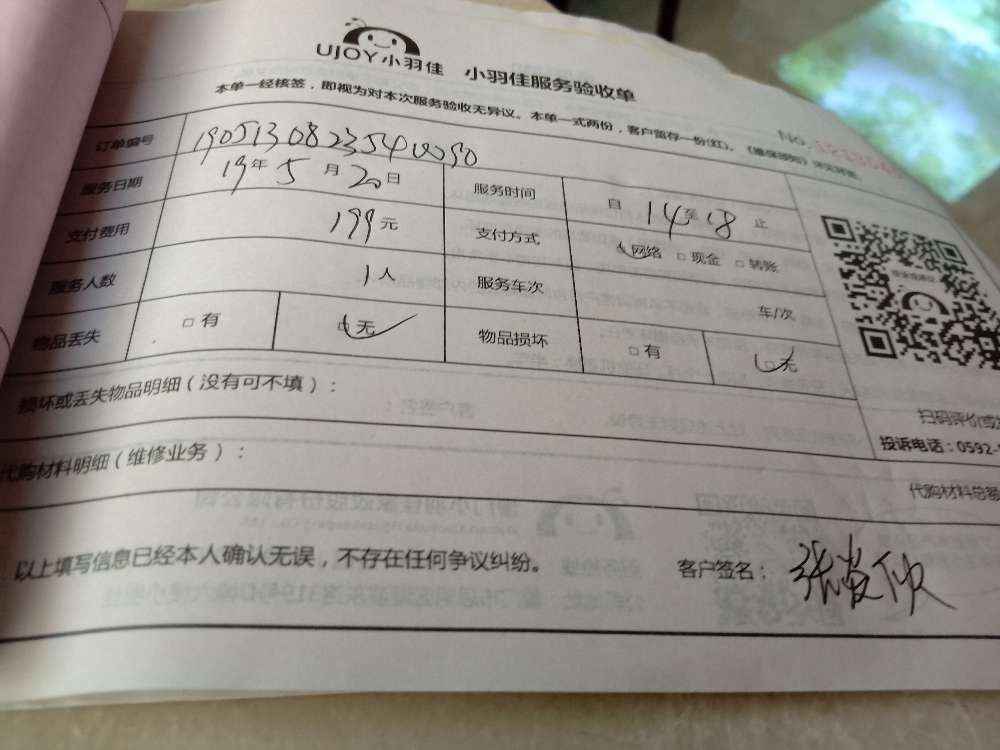 UJOY小羽佳 小羽佳服务验收单
本单一经核签，即视为对本次服务验收无异议。本单一式两份，客户留存一份(红)。
No.
订单编号
服务日期 19年5月20日 服务时间 自14至18止
支付费用 199元 支付方式 网络 □现金 □转账
服务人数 1人 服务车次 车/次
物品丢失 □有 □无 物品损坏 □有 □无
损坏或丢失物品明细（没有可不填）：
扫码评价或
投诉电话：0592-
代购材料明细（维修业务）：
代购材料总额
以上填写信息已经本人确认无误，不存在任何争议纠纷。 客户签名：